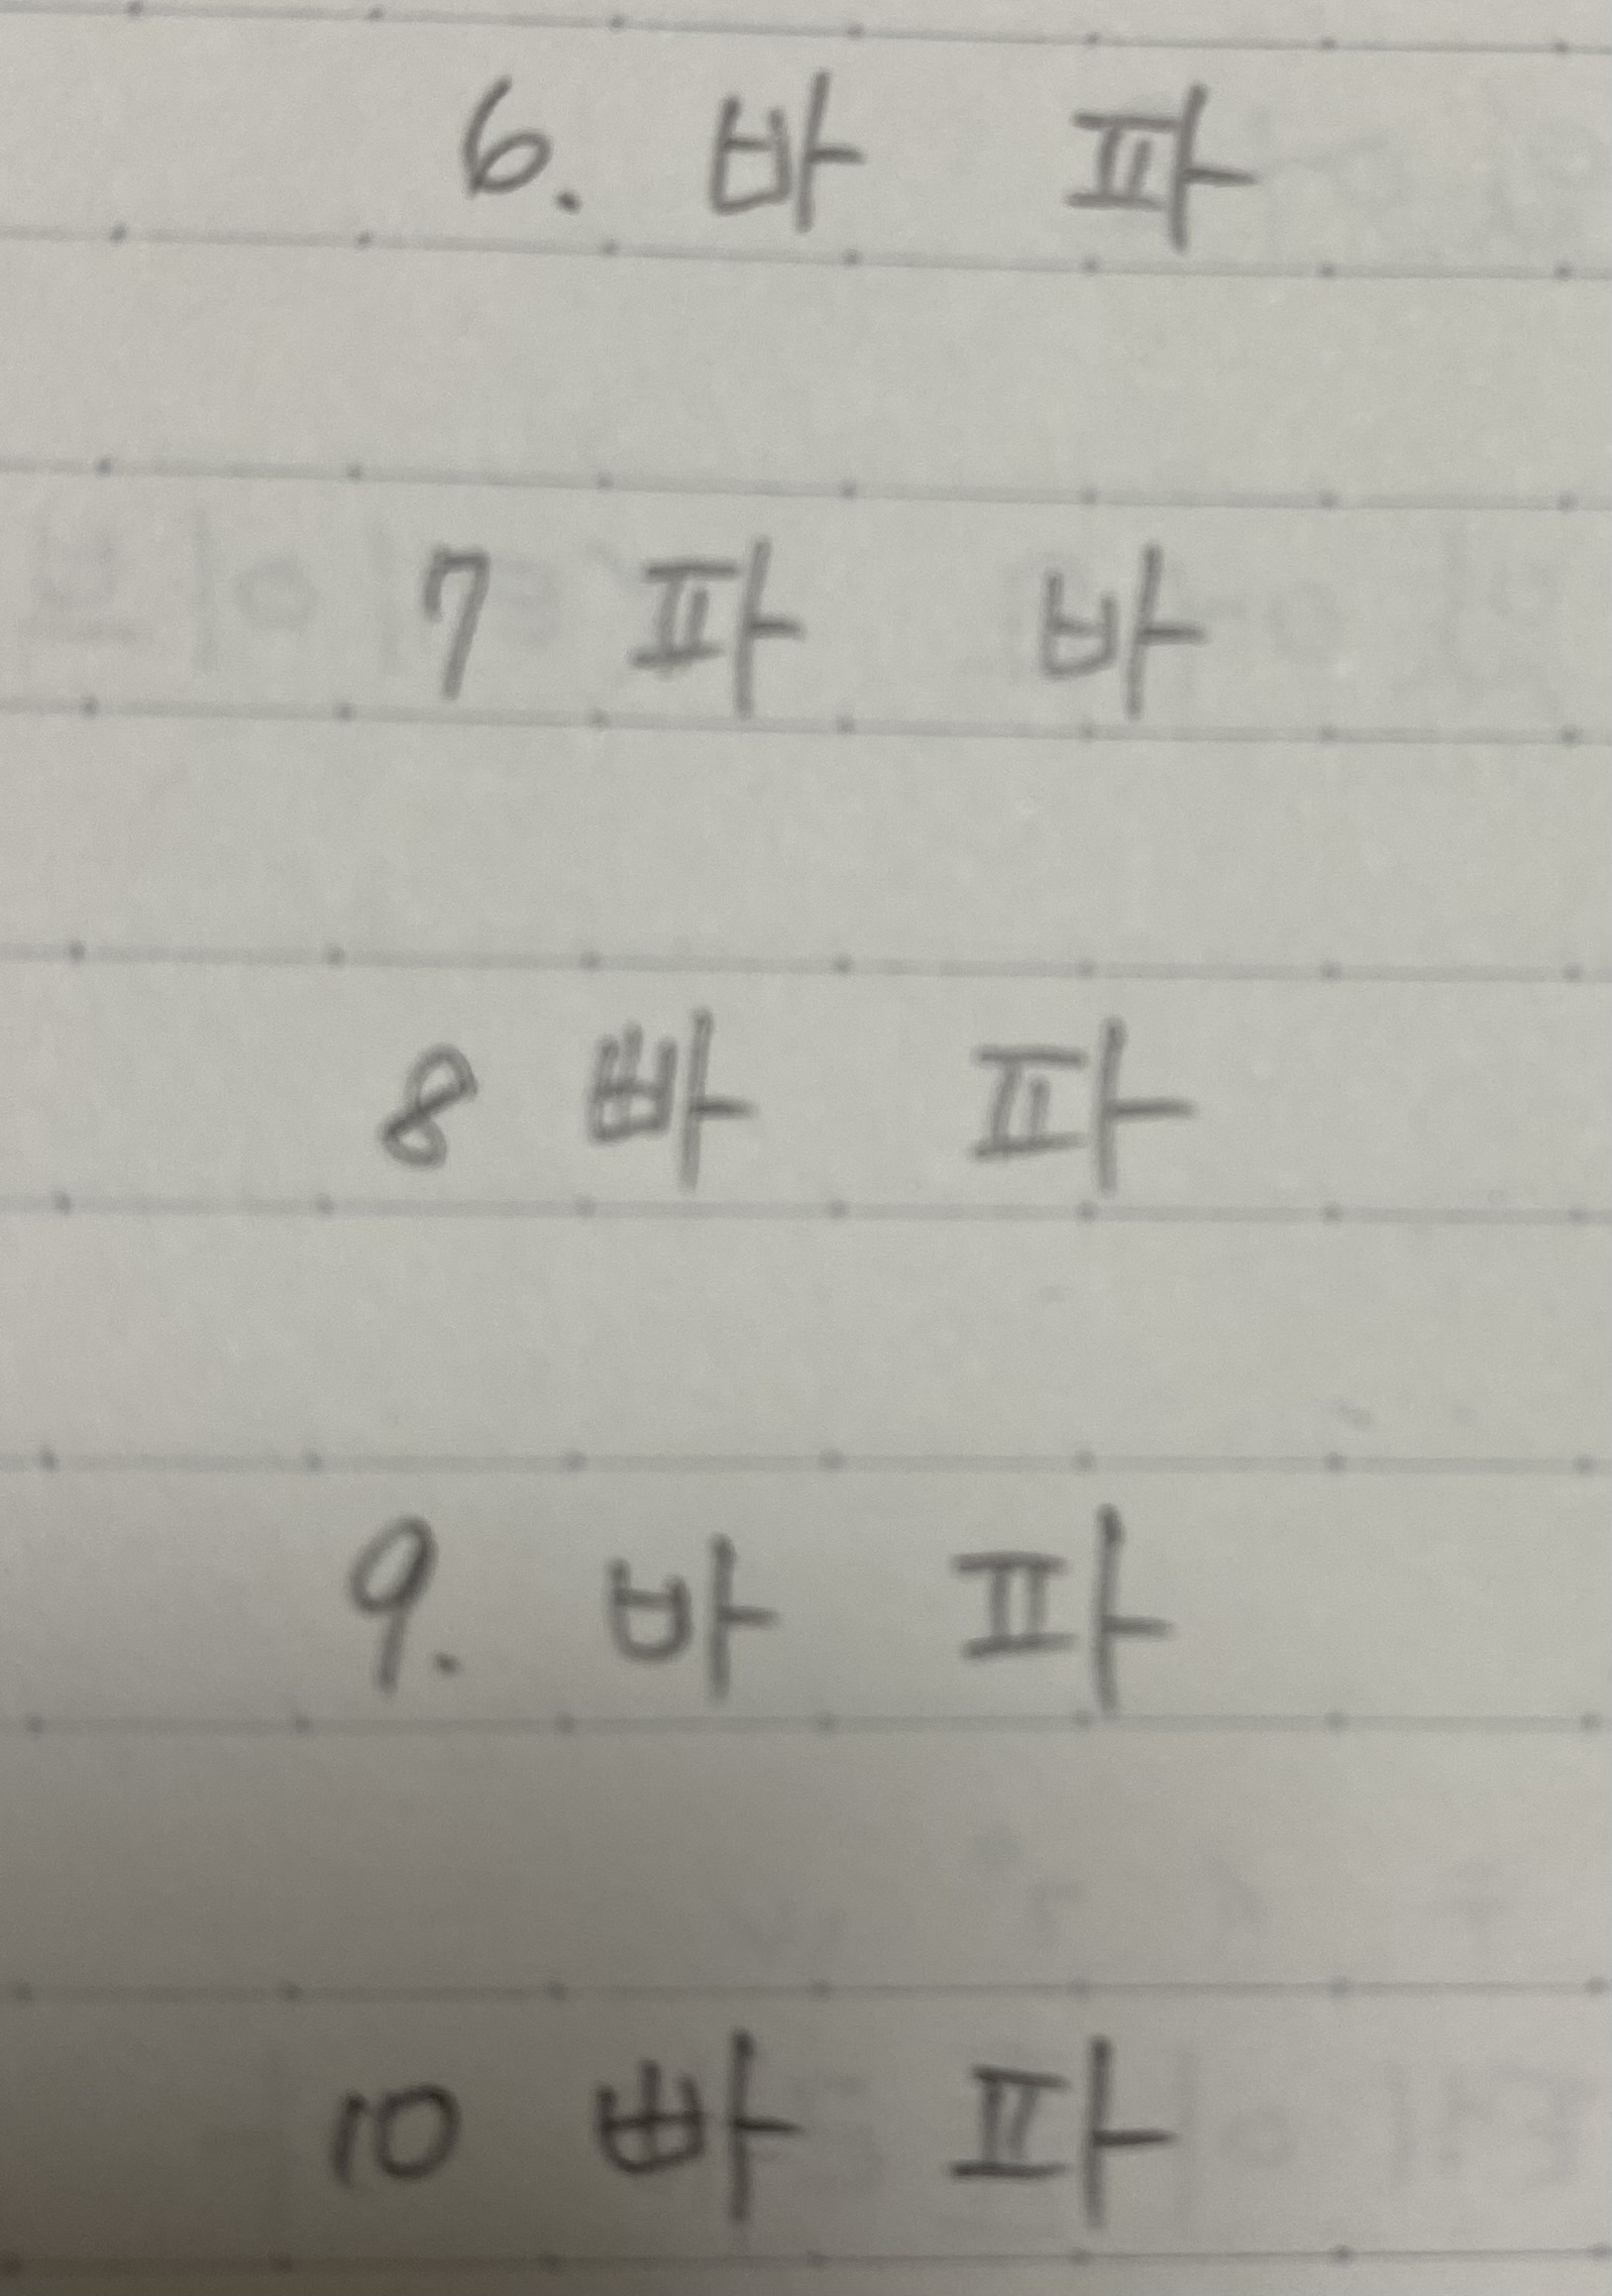 6. 바 파
7 파 바
8 빠 파
9. 바 파
10 빠 파